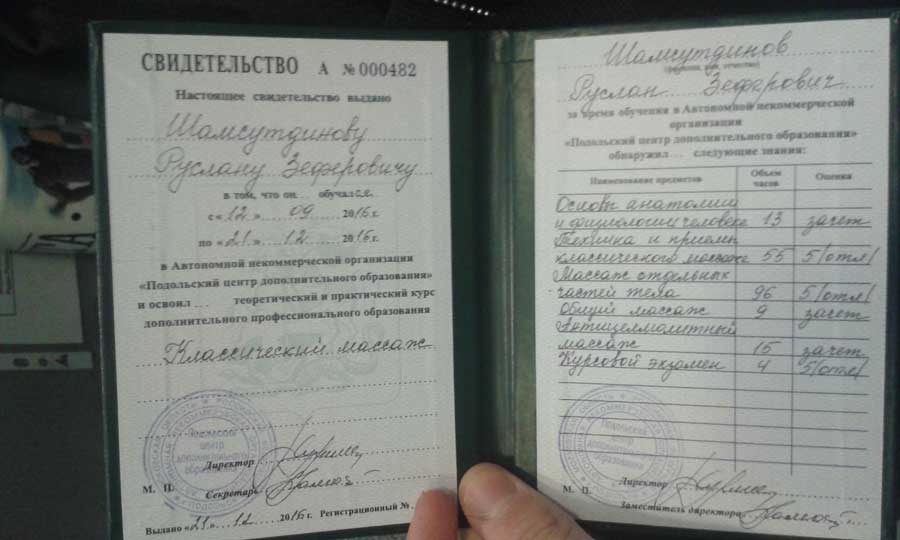 СВИДЕТЕЛЬСТВО А № 000482
Настоящее свидетельство выдано
Шамсутдинову
Руслану Зеферовичу
в том, что он ... обучался
с «12.» 09 2016 г.
по «21.» 12 2016 г.
в Автономной некоммерческой организации
«Подольский центр дополнительного образования»
и освоил ... теоретический и практический курс
дополнительного профессионального образования
Классический массаж
Подольский
центр
дополнительного
образования
Директор
М. П. Секретарь
Выдано «21» 12 2016 г. Регистрационный №
Шамсутдинов
(фамилия, имя, отчество)
Руслан Зеферович
за время обучения в Автономной некоммерческой
организации
«Подольский центр дополнительного образования»
обнаружил ... следующие знания:
Наименование предметов Объем часов Оценка
Основы анатомии
и физиологии человека 13 зачет
Техника и приемы
классического массажа 55 5/отл/
Массаж отдельных
частей тела 96 5/отл/
Общий массаж 9 зачет
Антицеллюлитный
массаж 15 зачет
Курсовой экзамен 4 5/отл/
Подольский
центр
дополнительного
образования
Директор
М. П.
Заместитель директора